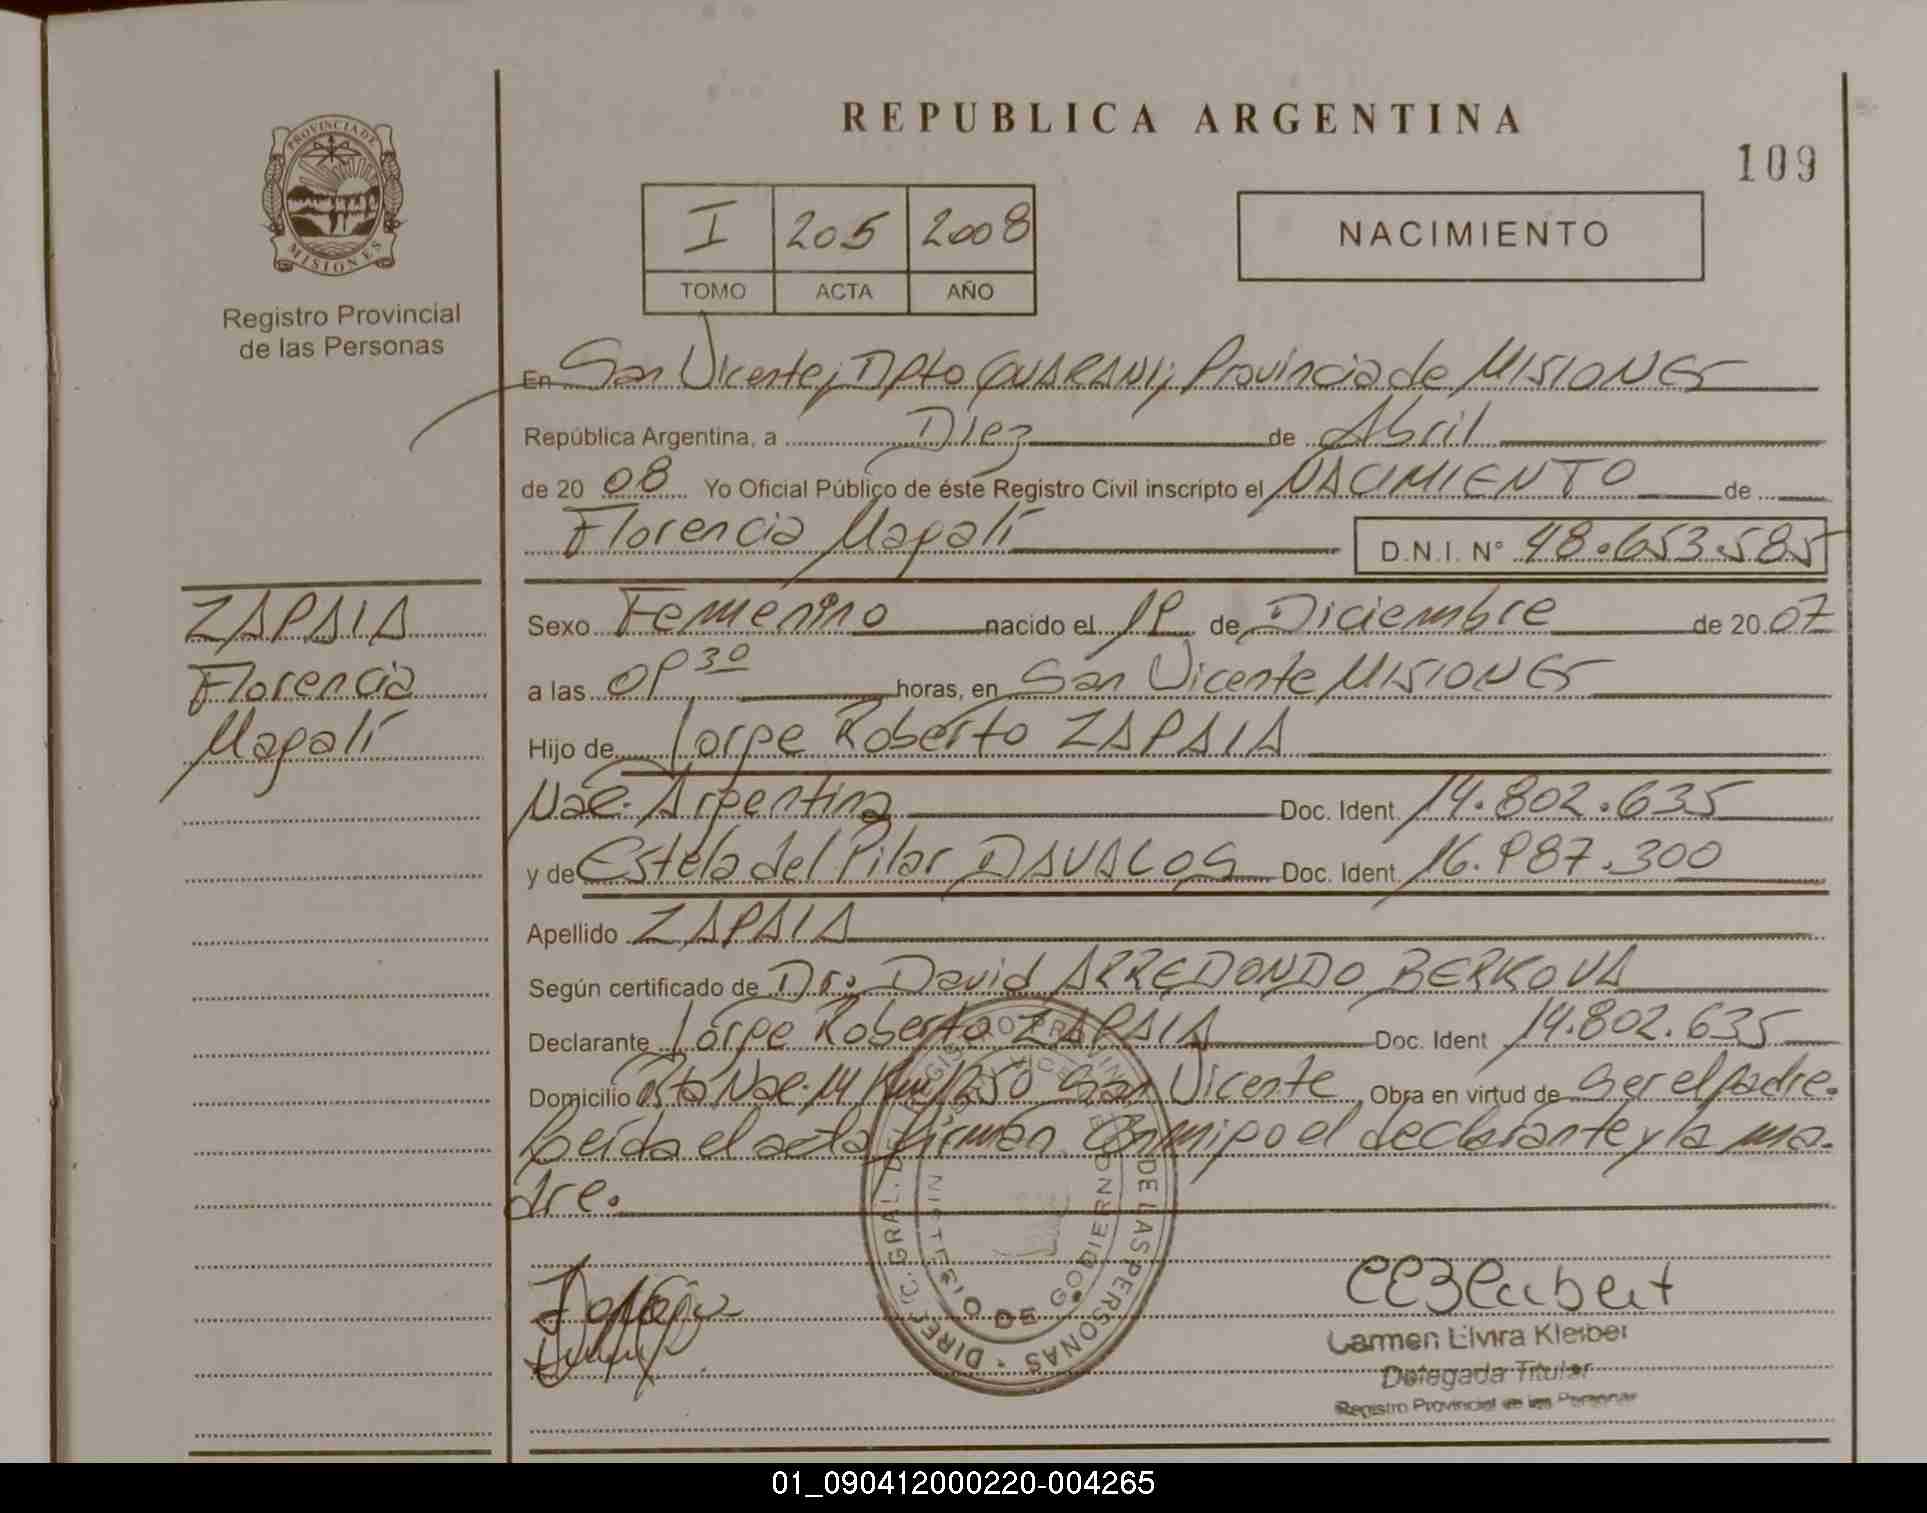 REPUBLICA ARGENTINA
109
PROVINCIA DE
MISIONES
Registro Provincial
de las Personas
I 205 2008
TOMO ACTA AÑO
NACIMIENTO
En San Vicente, Dpto GUARANI, Provincia de MISIONES
República Argentina, a Diez de Abril
de 20 08 Yo Oficial Público de éste Registro Civil inscripto el NACIMIENTO de
Florencia Magalí D.N.I. N° 48.653.585
ZAPAIA
Florencia
Magalí
Sexo Femenino nacido el 19 de Diciembre de 20 07
a las 09 30 horas, en San Vicente MISIONES
Hijo de Jorge Roberto ZAPAIA
Nac. Argentina Doc. Ident. 14.802.635
y de Estela del Pilar DAVALOS Doc. Ident. 16.987.300
Apellido ZAPAIA
Según certificado de Dr. David ARREDONDO BERKOVA
Declarante Jorge Roberto ZAPAIA Doc. Ident 14.802.635
Domicilio Rta Nac. 14 Km 1250 San Vicente Obra en virtud de Ser el padre.
Leída el acta firman conmigo el declarante y la ma-
dre.
DIREC. GRAL. DEL REGISTRO PROVINCIAL DE LAS PERSONAS
MINISTERIO DE GOBIERNO
Carmen Elvira Kleiber
Delegada Titular
Registro Provincial de las Personas
01_090412000220-004265